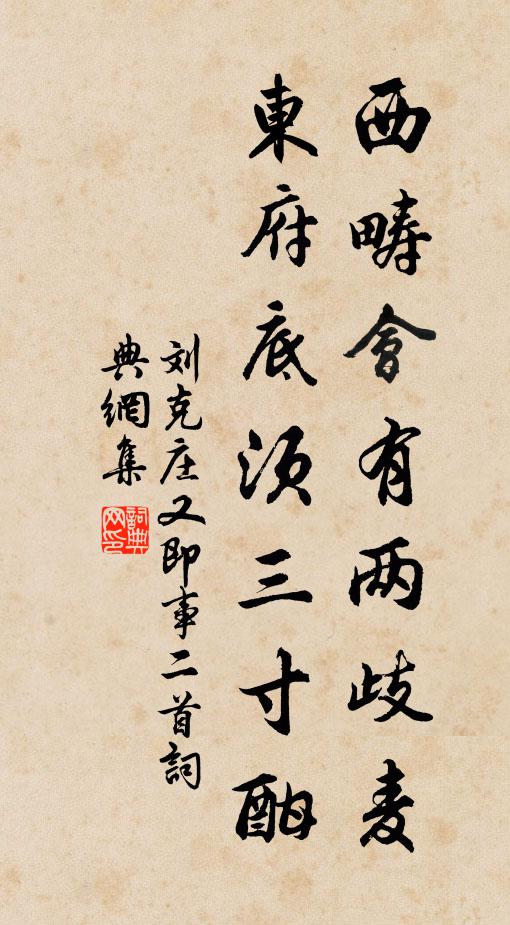 西疇會有两歧麦
東府底須三寸酣
刘克庄又即事二首詞
典網集
詞典
网印